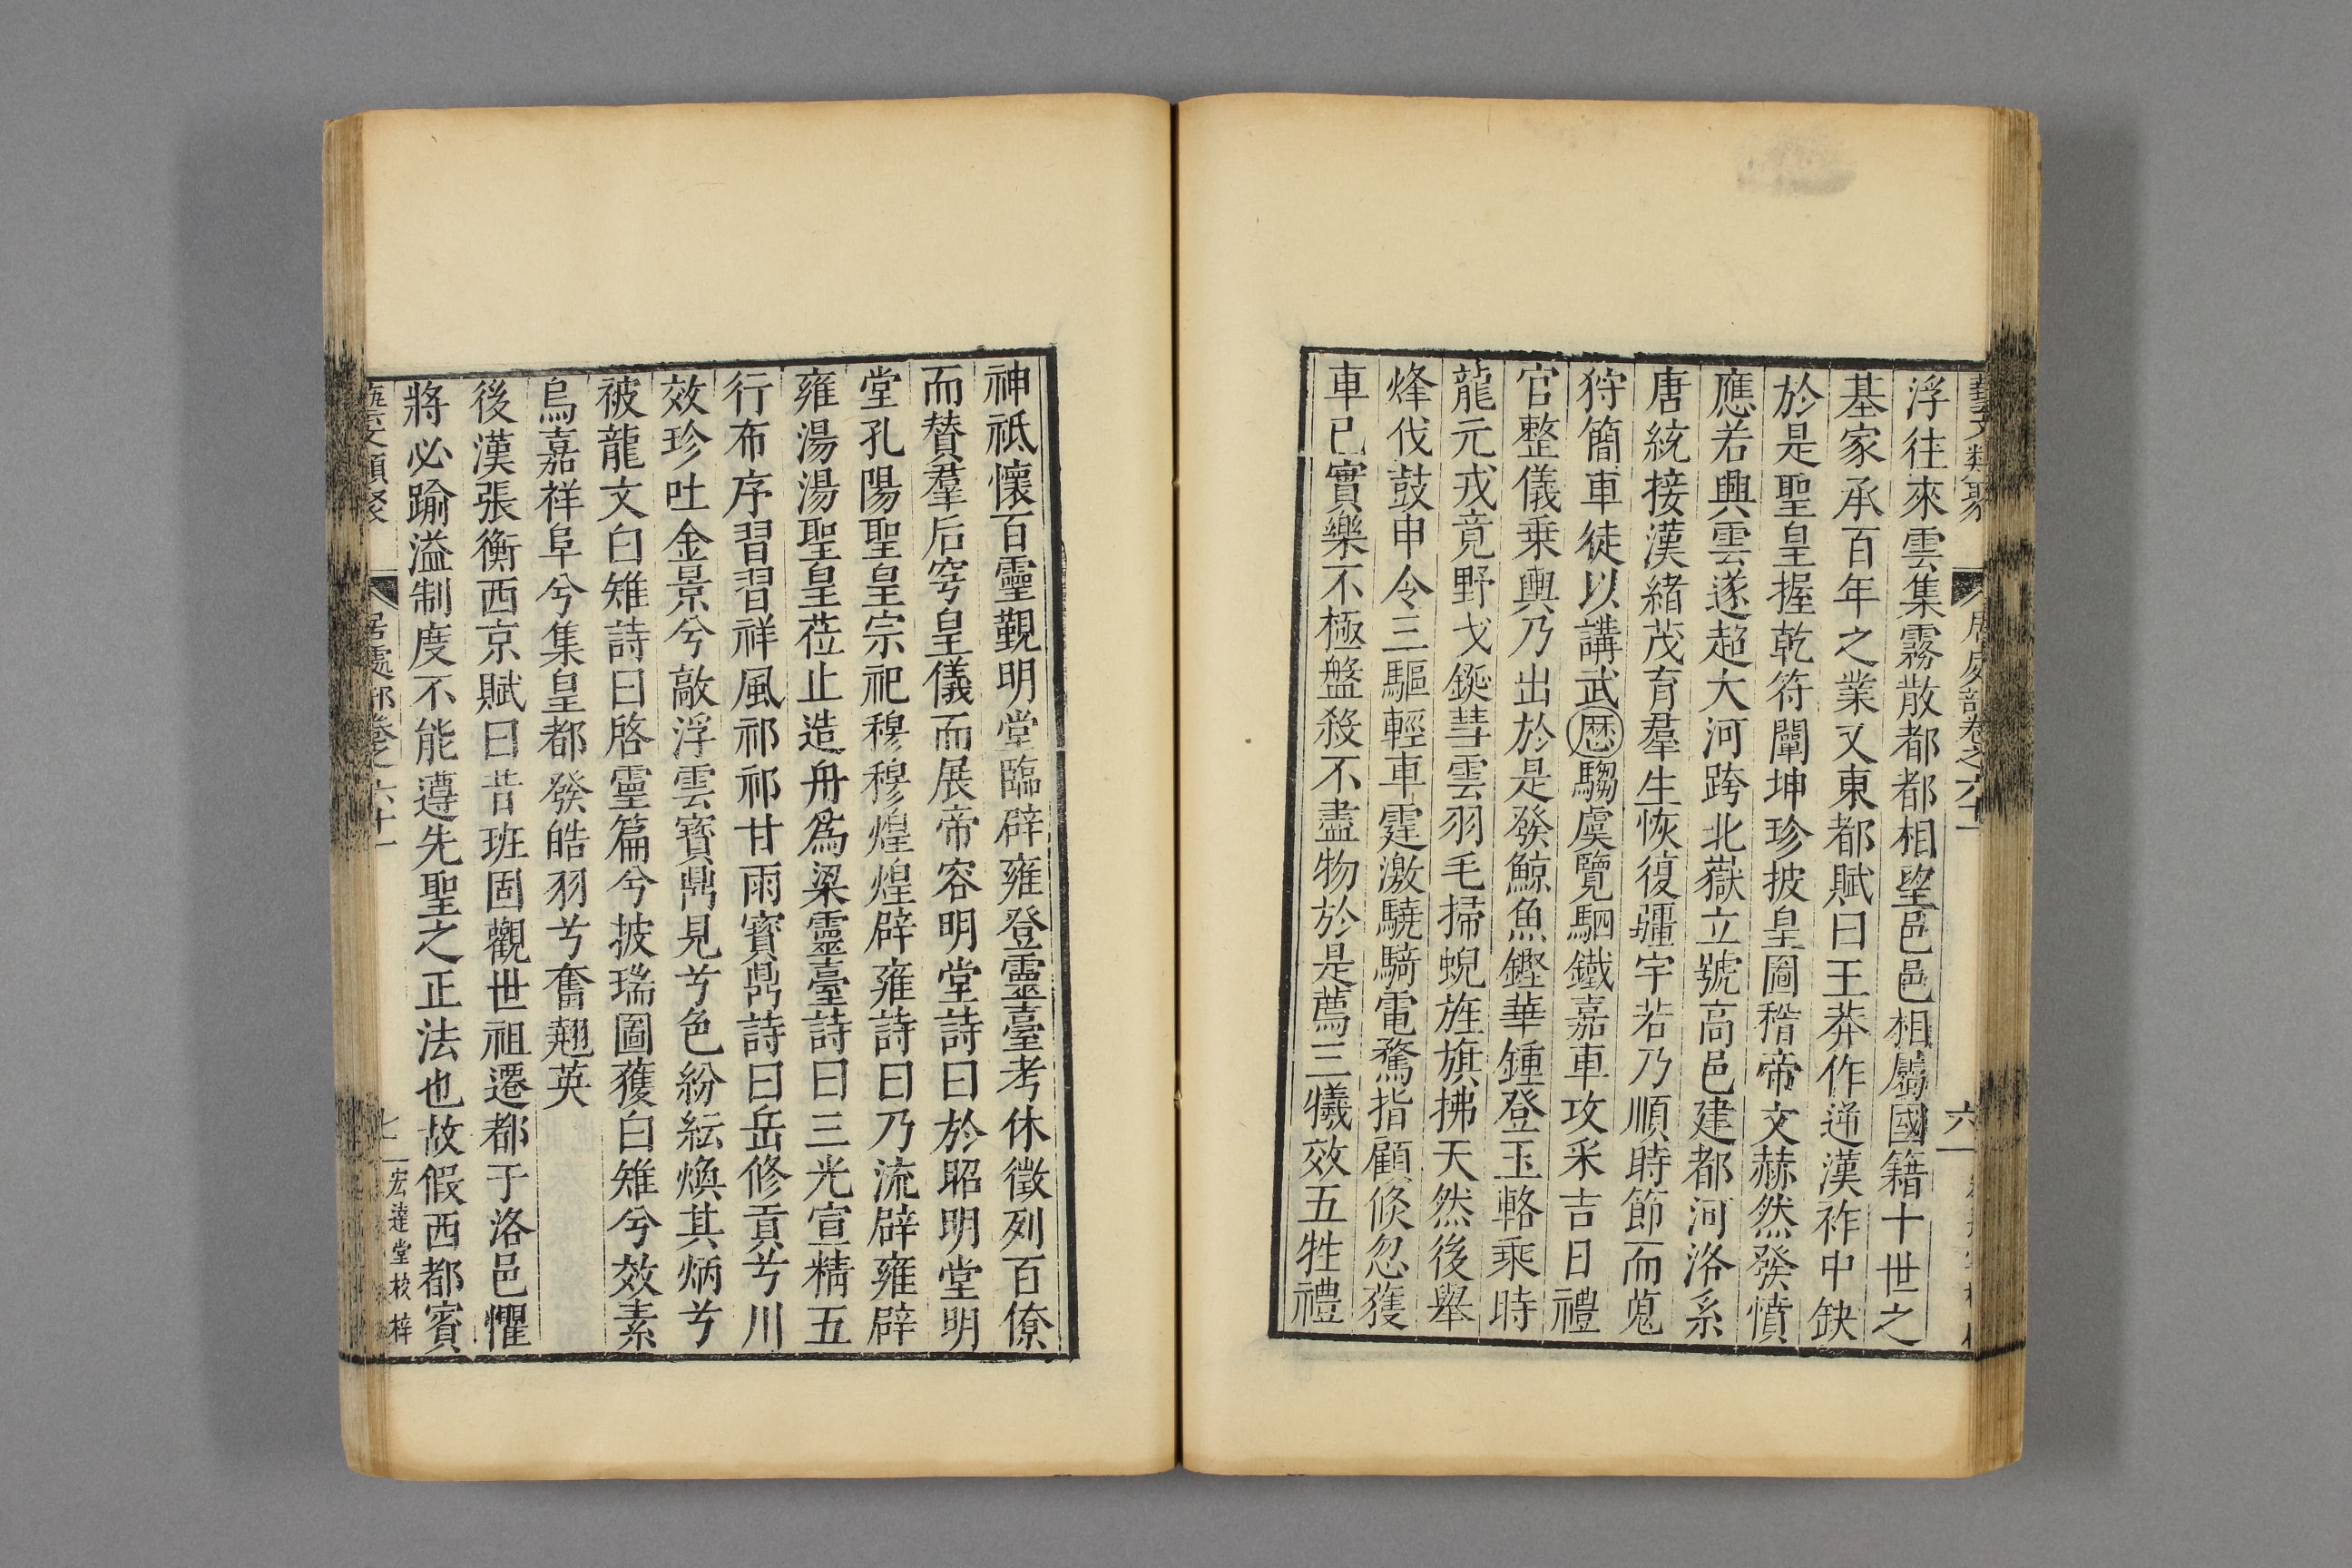 藝文類聚 居處部卷之六十一 六
浮往來雲集霧散都都相望邑邑相屬國籍十世之
基家承百年之業又東都賦曰王莽作逆漢祚中缺
於是聖皇握乾符闡坤珍披皇圖稽帝文赫然發憤
應若興雲遂超大河跨北嶽立號高邑建都河洛系
唐統接漢緒茂育羣生恢復疆宇若乃順時節而蒐
狩簡車徒以講武歷騶虞覽駟鐵嘉車攻采吉日禮
官整儀乗輿乃出於是發鯨魚鏗華鍾登玉輅乘時
龍元戎竟野戈鋋彗雲羽毛掃蜺旌旗拂天然後舉
烽伐鼓申令三驅輕車霆激驍騎電騖指顧倐忽獲
車已實樂不極盤殺不盡物於是薦三犧效五牲禮
神祗懷百靈覲明堂臨辟雍登靈臺考休徵列百僚
而賛羣后穹皇儀而展帝容明堂詩曰於昭明堂明
堂孔陽聖皇宗祀穆穆煌煌辟雍詩曰乃流辟雍辟
雍湯湯聖皇莅止造舟爲梁靈臺詩曰三光宣精五
行布序習習祥風祁祁甘雨寳鼎詩曰岳修貢兮川
效珍吐金景兮敵浮雲寳鼎見兮色紛紜煥其炳兮
被龍文白雉詩曰啓靈篇兮披瑞圖獲白雉兮效素
烏嘉祥阜兮集皇都發皓羽兮奮翹英
後漢張衡西京賦曰昔班固觀世祖遷都于洛邑懼
將必踰溢制度不能遵先聖之正法也故假西都賓
藝文類聚 居處部卷之六十一 七 宏達堂校梓